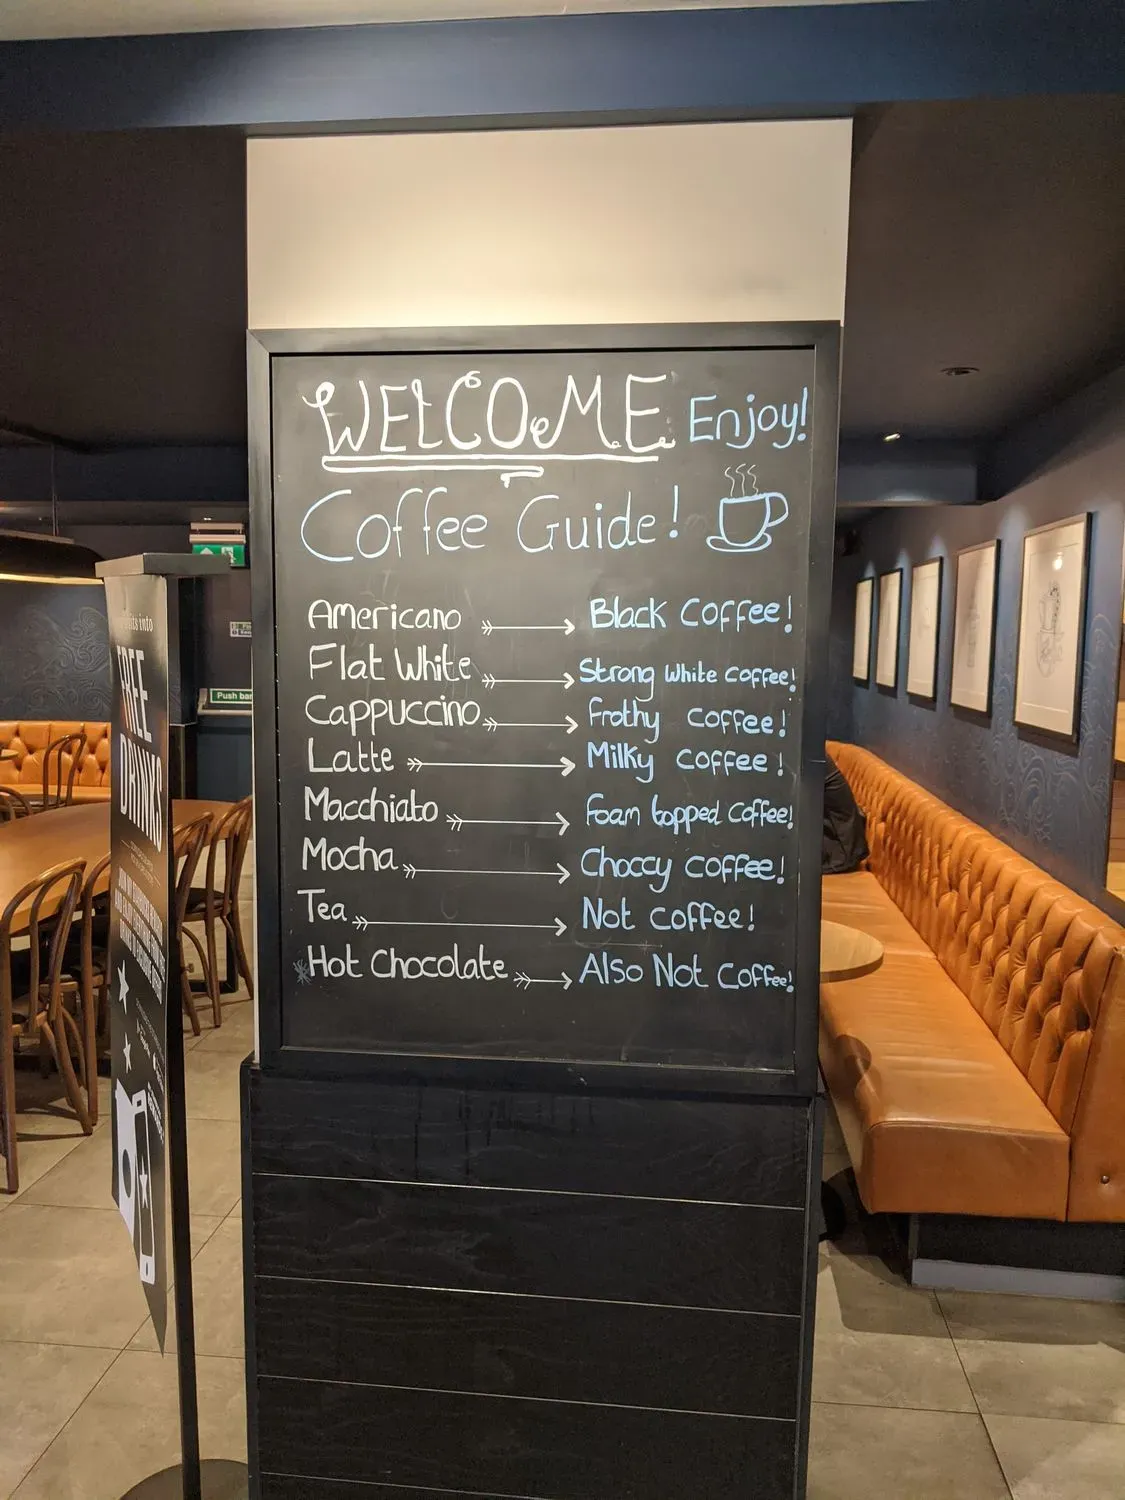 WELCOME Enjoy!
Coffee Guide!
Americano Black Coffee!
Flat White Strong White Coffee!
Cappuccino Frothy Coffee!
Latte Milky Coffee!
Macchiato Foam topped Coffee!
Mocha Choccy Coffee!
Tea Not Coffee!
Hot Chocolate Also Not Coffee!
into
FREE
DRINKS
Push bar